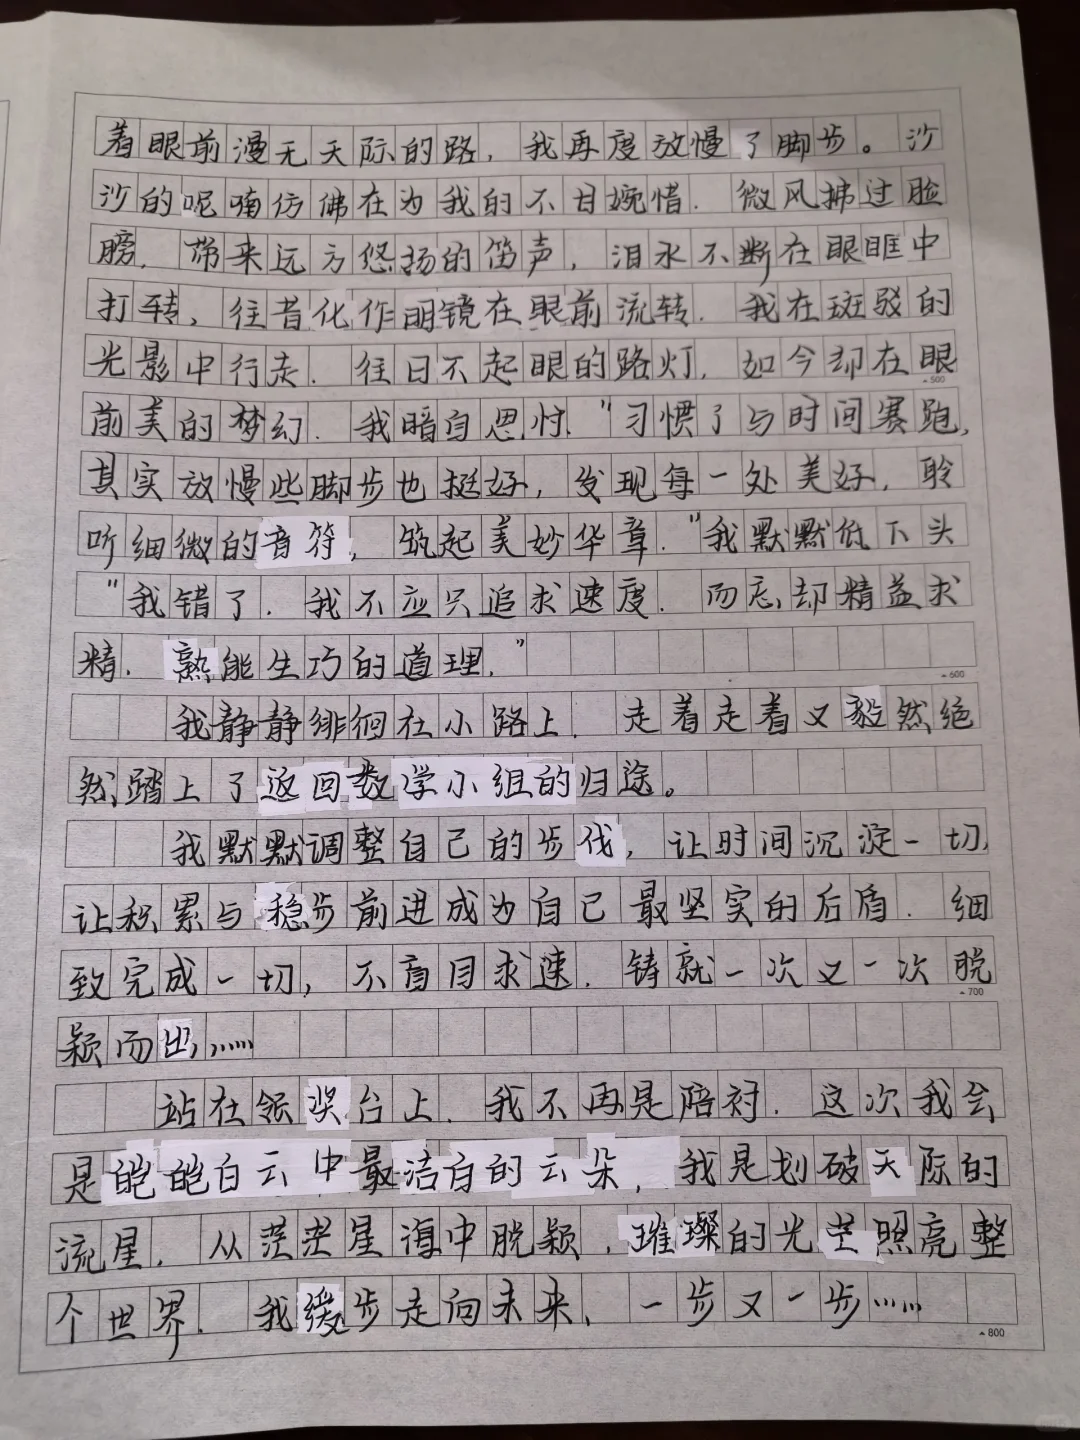 着眼前漫无天际的路，我再度放慢了脚步。沙
沙的呢喃仿佛在为我的不甘婉惜. 微风拂过脸
膀. 带来远方悠扬的笛声，泪水不断在眼眶中
打转，往昔化作明镜在眼前流转. 我在斑驳的
光影中行走. 往日不起眼的路灯，如今却在眼
▲500
前美的梦幻. 我暗自思忖. "习惯了与时间赛跑，
其实放慢些脚步也挺好，发现每一处美好，聆
听细微的音符，筑起美妙华章. "我默默低下头
"我错了. 我不应只追求速度. 而忘却精益求
精. 熟能生巧的道理."
▲600
我静静徘徊在小路上. 走着走着又毅然绝
然踏上了返回数学小组的归途。
我默默调整自己的步伐，让时间沉淀一切，
让积累与稳步前进成为自己最坚实的后盾. 细
致完成一切，不盲目求速. 铸就一次又一次脱
▲700
颖而出，……
站在领奖台上. 我不再是陪衬. 这次我会
是皑皑白云中最洁白的云朵，我是划破天际的
流星. 从茫茫星海中脱颖，璀璨的光芒照亮整
个世界. 我缓步走向未来、一步又一步……
▲800